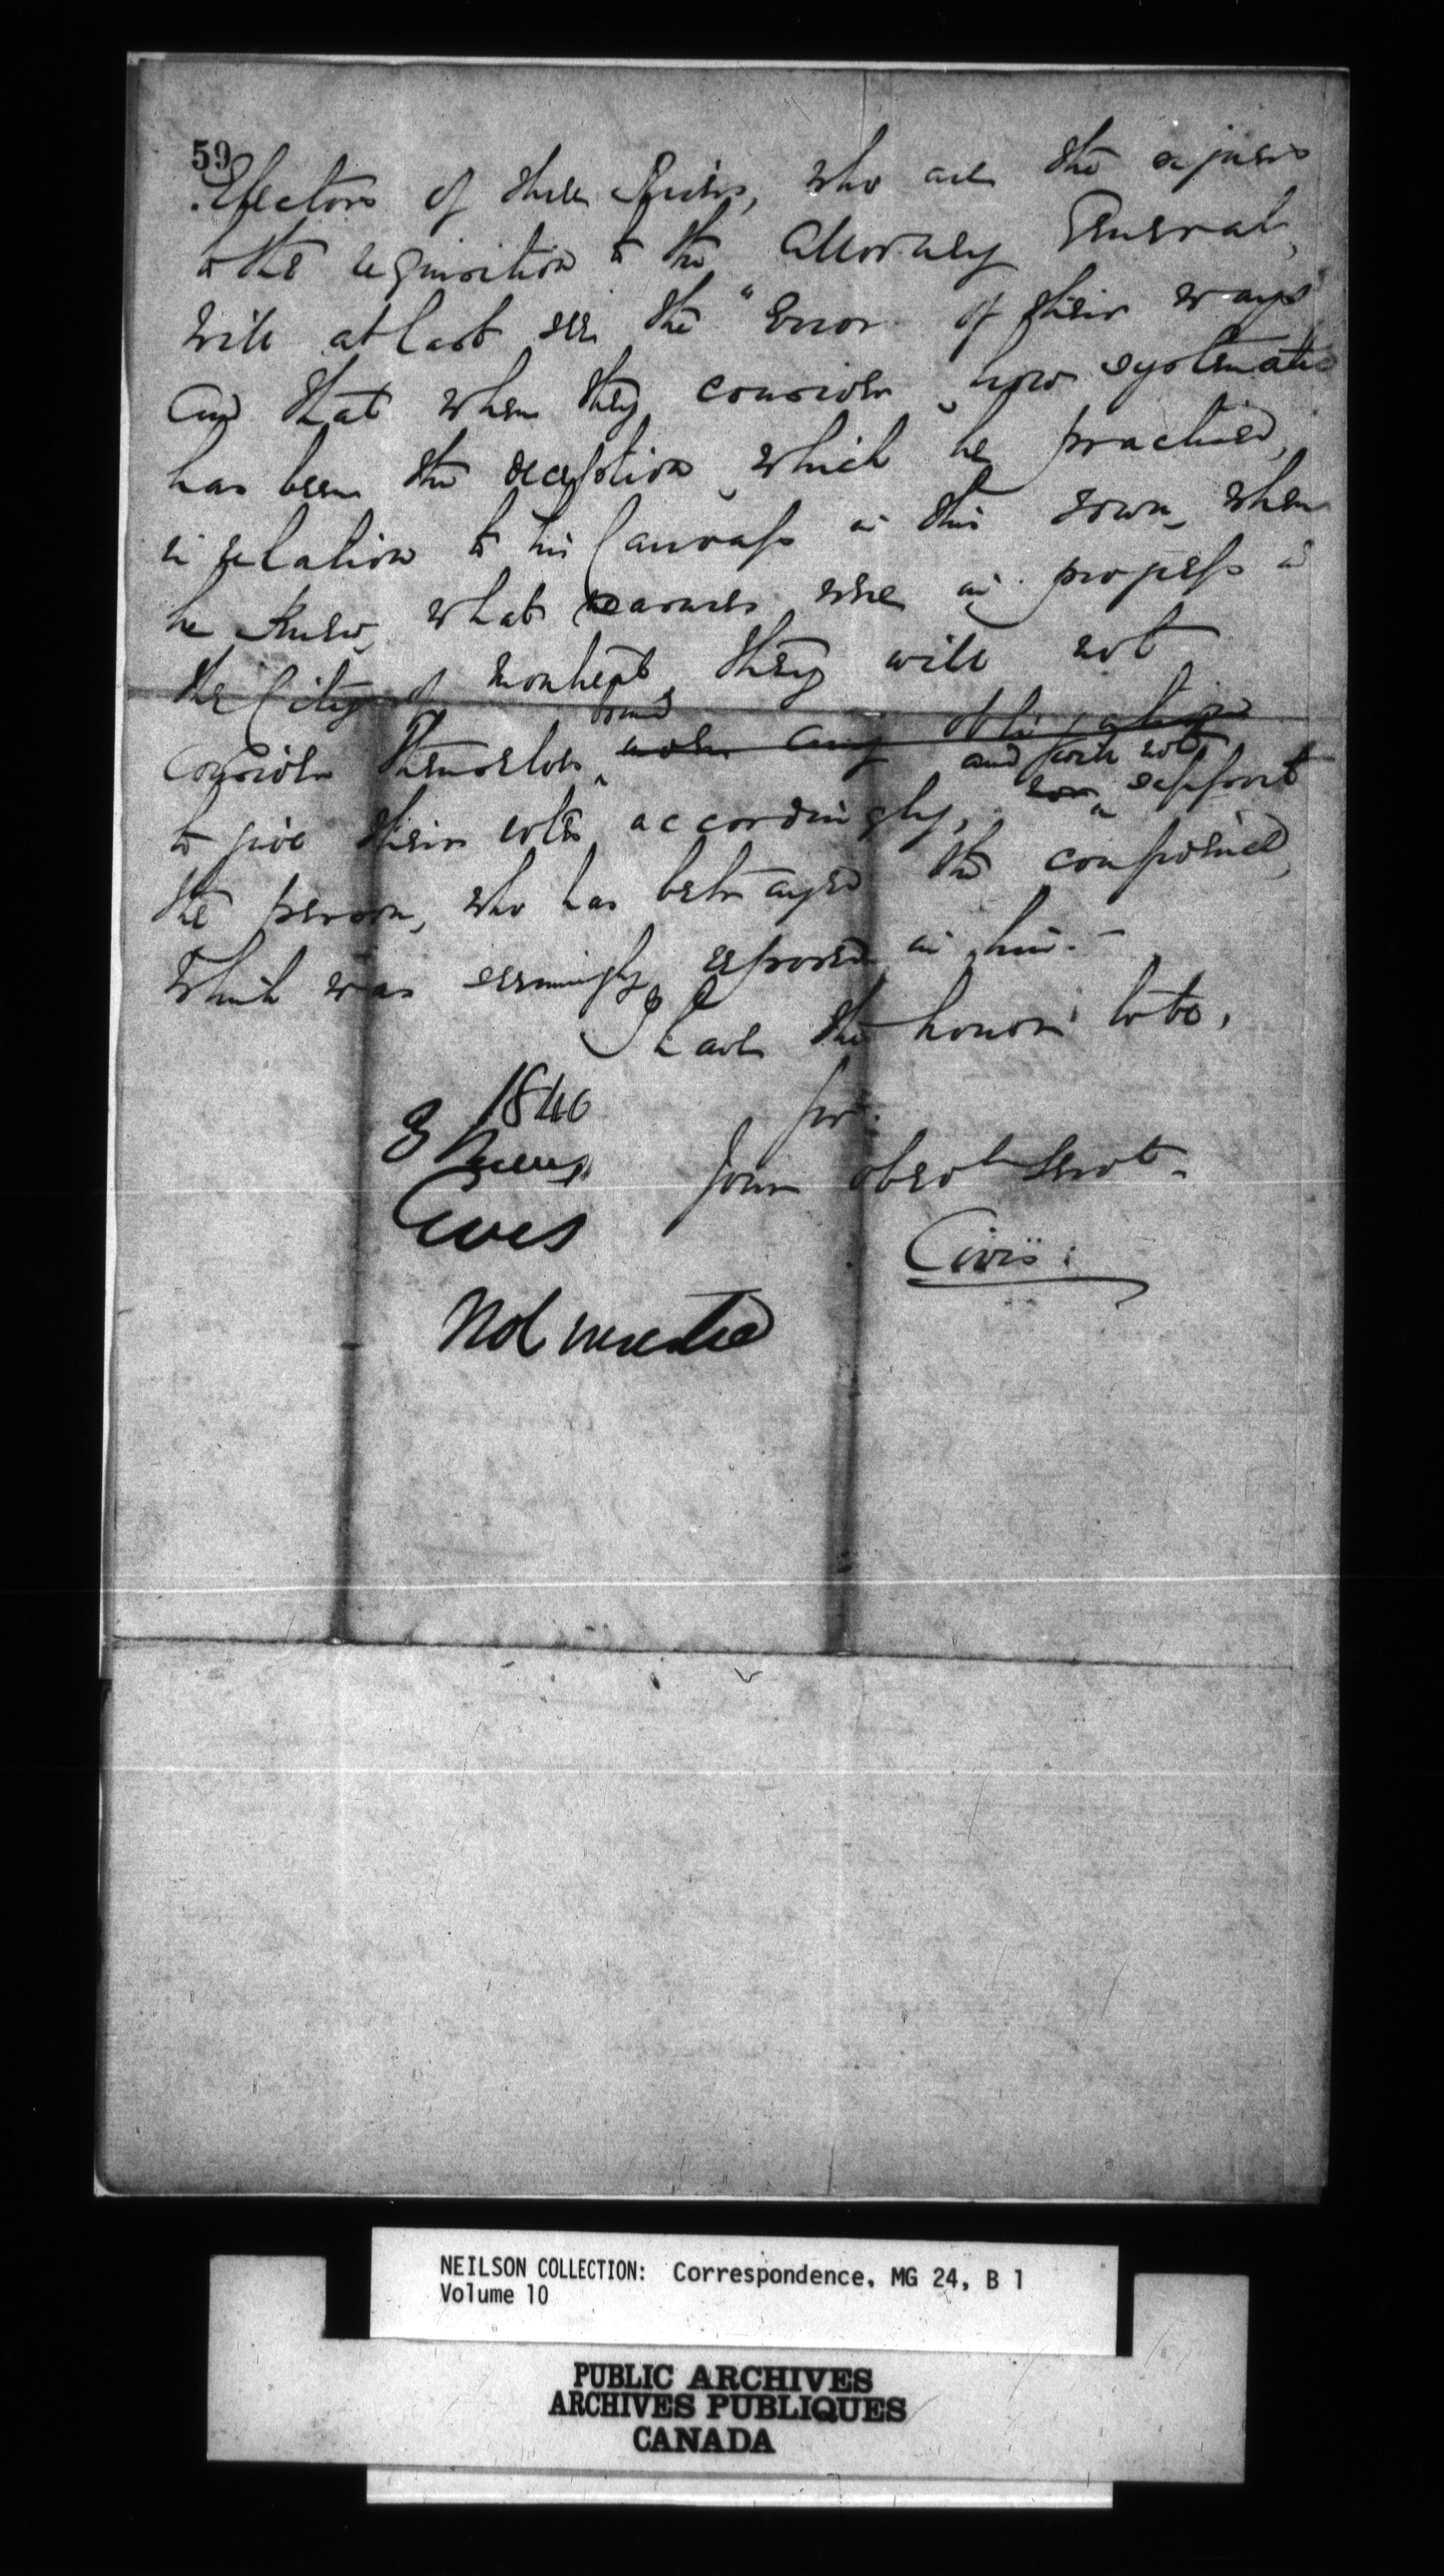 59
Electors of Three Rivers, who are the signers
to the requisition to the Attorney General,
will at last see the "Error of their ways"
and that when they consider, how systematic
has been the deception, which he practised,
in relation to his Canvass in this Town, when
he knew, what were in progress in
the City of Montreal, they will not
consider themselves bound under any obligation
to give their votes accordingly, and will not nor support
the person, who has betrayed the confidence,
which was seemingly reposed in him.-
I have the honor to be,
Sir.
Your obedt Servt.
Civis:
1840
3 Rivers
Cives
Not inserted
NEILSON COLLECTION: Correspondence, MG 24, B 1
Volume 10
PUBLIC ARCHIVES
ARCHIVES PUBLIQUES
CANADA